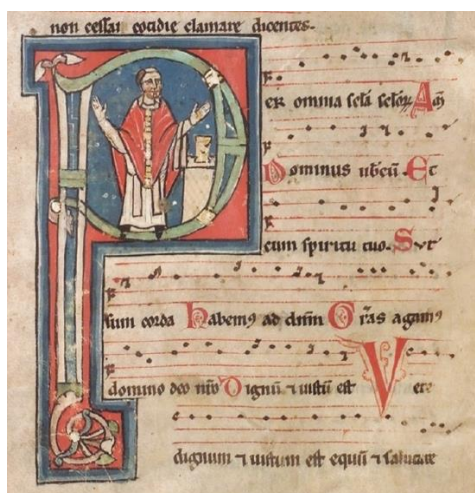 non cessant cotidie clamare dicentes.
Per omnia scła scłoꝝ. Am̅
Dominus ub̅cu̅. Et
cum spiritu tuo. Surſ
sum corda habem⁹ ad dn̅m Gr̅as agam⁹
domino deo nr̅o Dignu̅ ⁊ iustu̅ est Vere
dignum ⁊ iustum est equu̅ ⁊ salutare